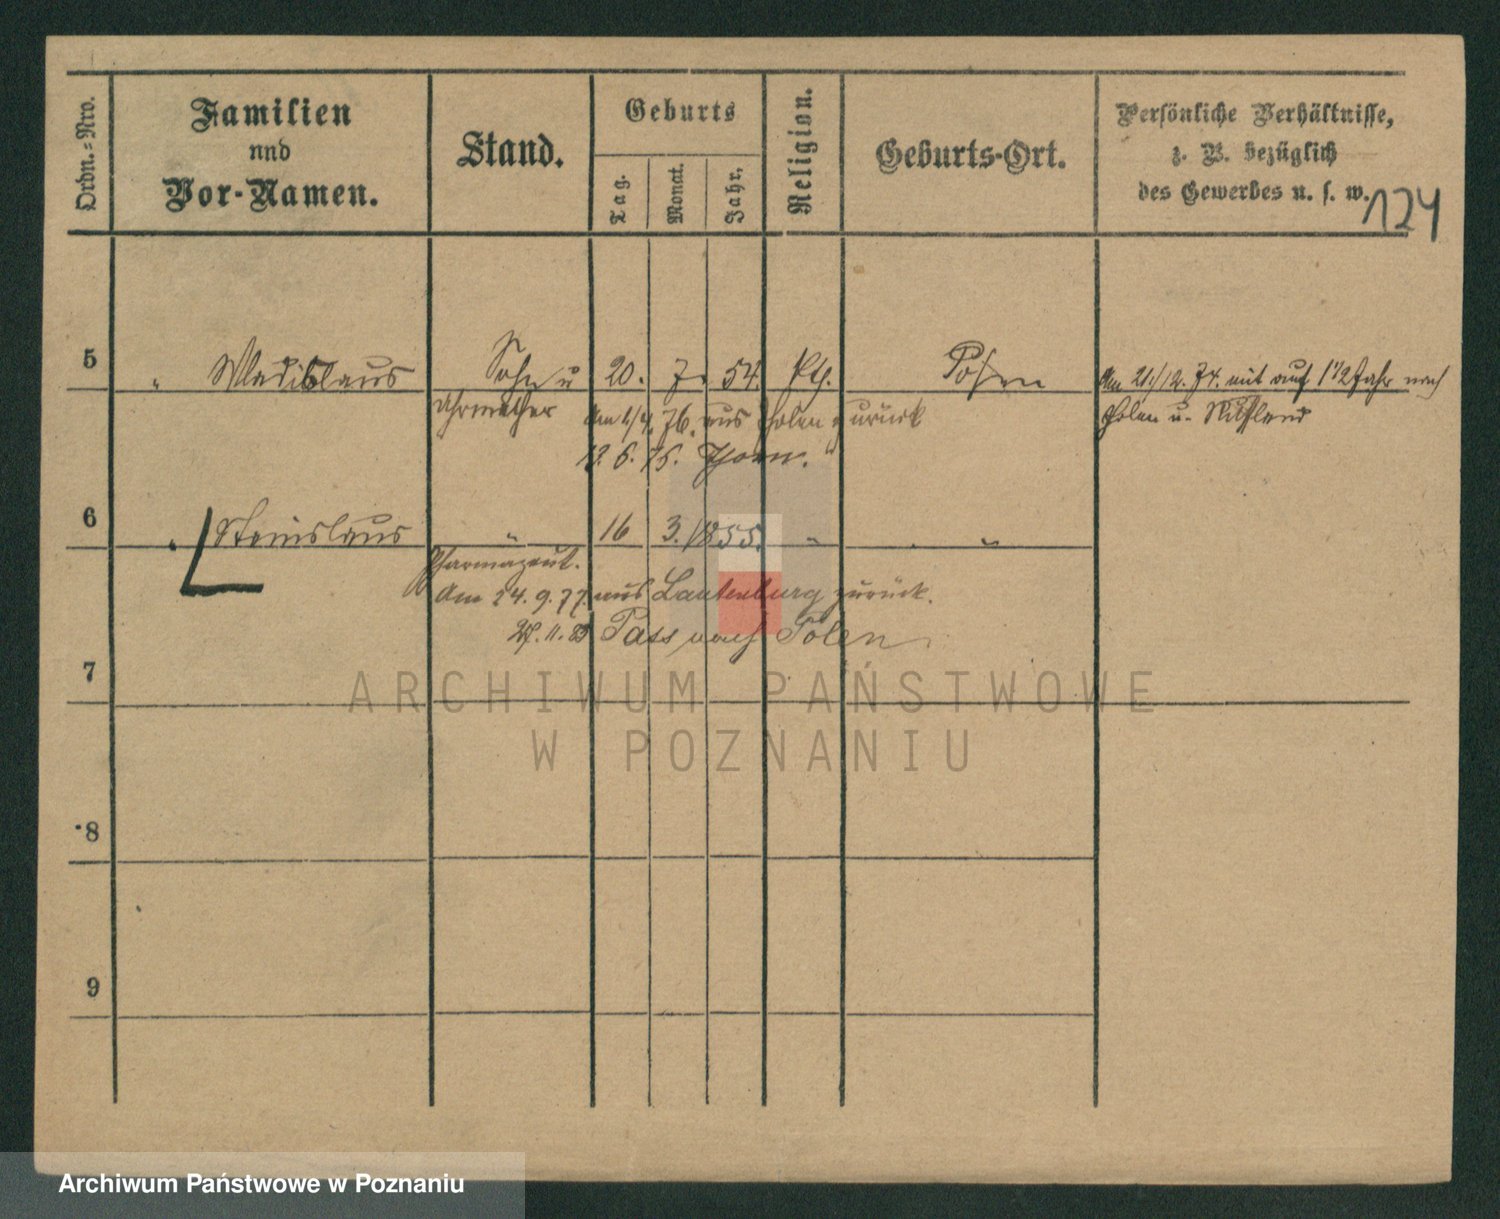 Ordn.=Nro.
Familien
und
Vor-Namen.
Stand.
Geburts
Tag.
Monat.
Jahr.
Religion.
Geburts-Ort.
Persönliche Verhältnisse,
z. B. bezüglich
des Gewerbes u. s. w.
124
5 " Wladislaus Sohn u 20. 7. 54. Kth. Posen Am 21./12. 74. mit auf 1 1/2 Jahr nach
Uhrmacher Am 1/4. 76. aus Polen zurück Polen u. Rußland
12. 6. 75. Thorn.
6 " Stanislaus " 16 3. 1855. " "
Pharmazeut.
Am 24. 9. 77. aus Lautenburg zurück.
28. 11. 83 Pass nach Polen
7
ARCHIWUM PAŃSTWOWE
W POZNANIU
8
9
Archiwum Państwowe w Poznaniu